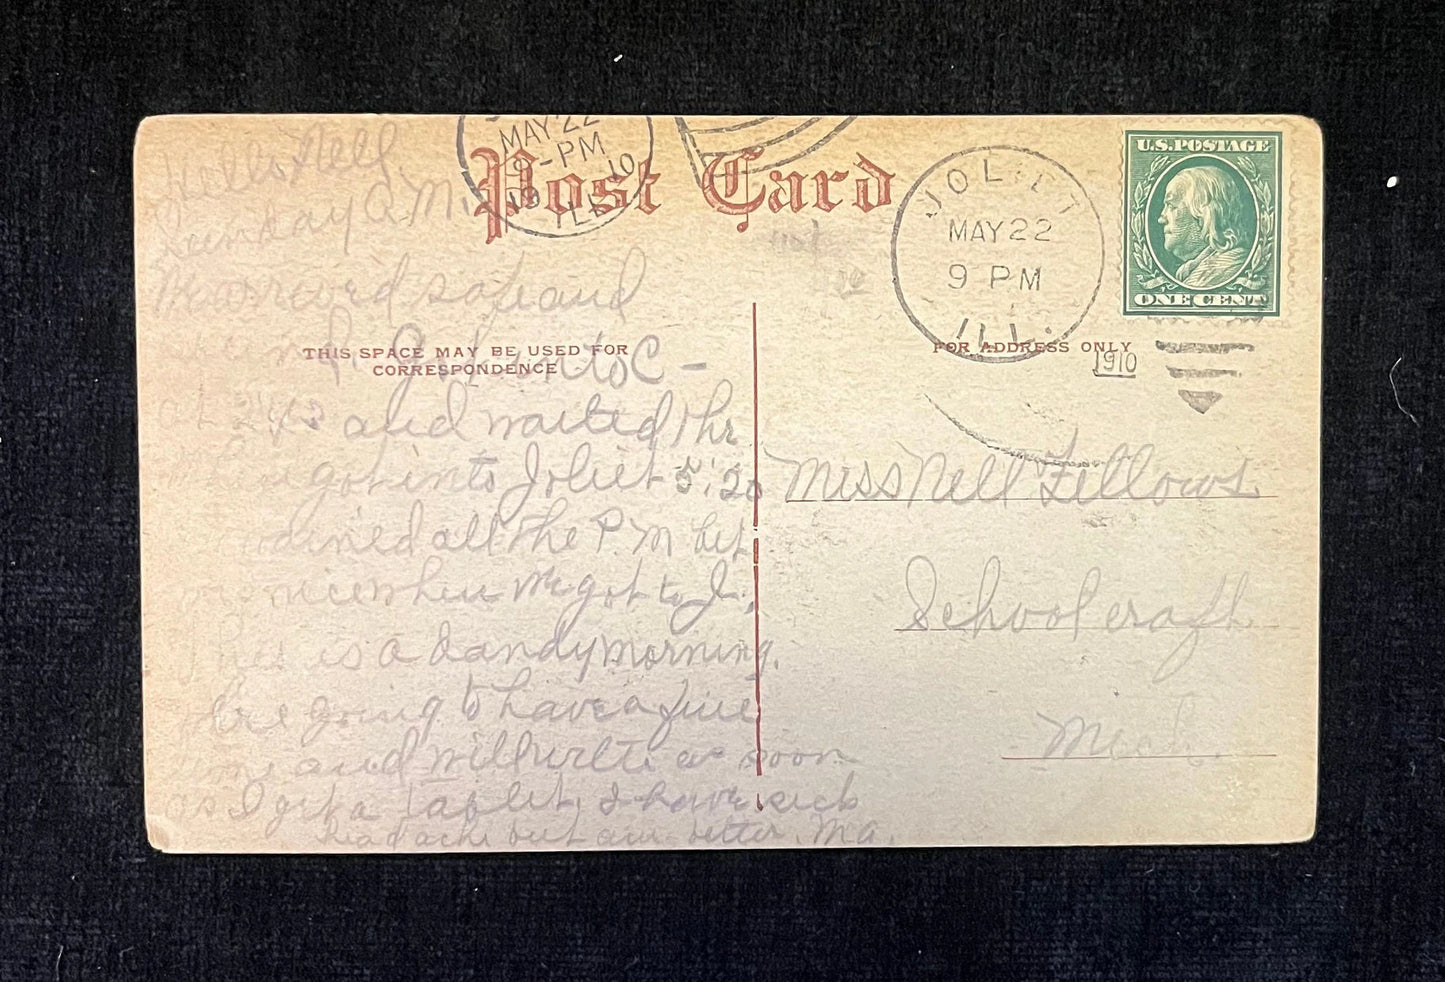 Hello Nell
Sunday A.M.
arrived safe and
Got into C -
at 2:45 and waited 1 hr
got into Joliet 5:20
rained all the P.M. but
was nice when we got to J.
This is a dandy morning.
Are going to have a fine
time and will write as soon
as I get a tablet. I have sick
headache but am better. Ma.
Post Card
MAY 22
9-PM
1910
ILL.
THIS SPACE MAY BE USED FOR
CORRESPONDENCE
JOLIET
MAY 22
9 PM
ILL.
1910
U.S. POSTAGE
ONE CENT
FOR ADDRESS ONLY
Miss Nell Fellows
Schoolcraft
Mich.